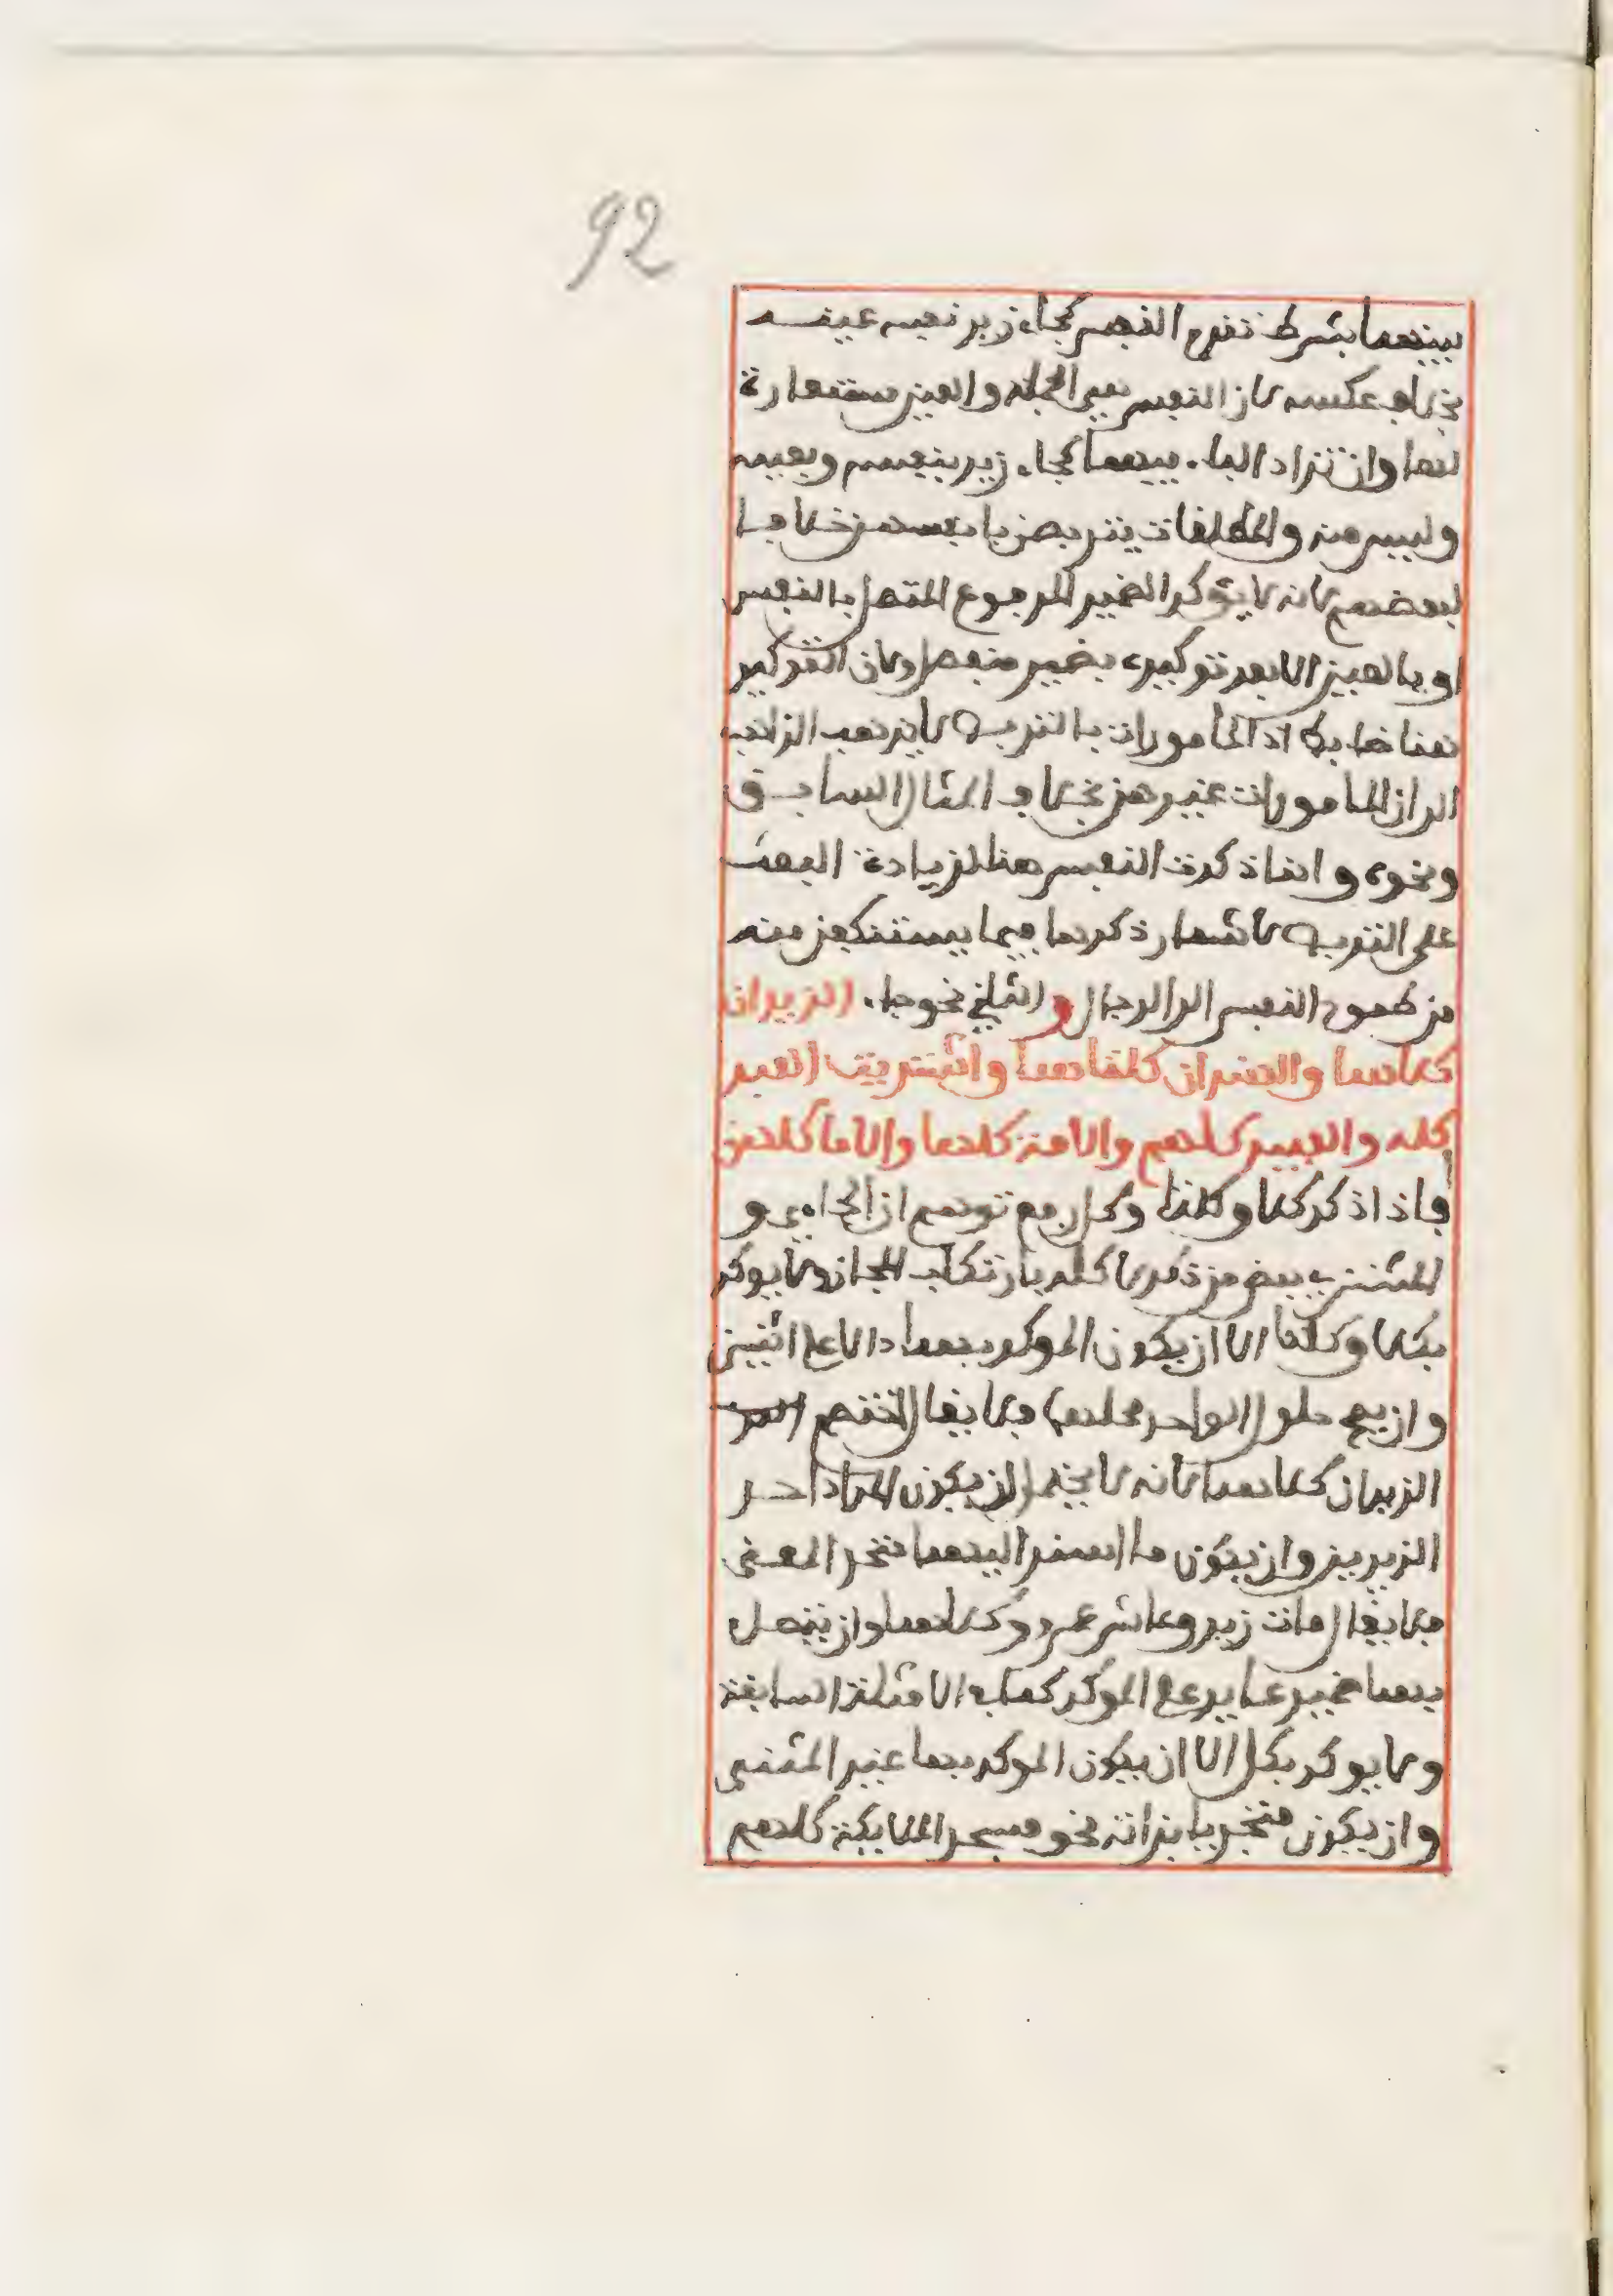 92
بينهما بشرط تقدم النفس كجاء زيد نفسه عينه
بخلاف عكسه لان النفس هي الجملة والعين مستعارة
لها وان تزاد الباء بينهما كجاء زيد بنفسه وبعينه
وليس منه والمطلقات يتربصن بانفسهن خلافا
لبعضهم لانه لا يوكد الضمير المرفوع المتصل بالنفس
او بالعين الا بعد توكيده بضمير منفصل ولان التوكيد
هنا ضايع اذ المامورات بالتربص لا يذهب الذاهب
الى ان المامورات غيرهن بخلاف المثال السابق
ونحوه وانما ذكرت النفس هنا لزيادة البعث
على التربص لاشعار ذكرها فيما يستنكفن منه
من طموح النفس الى الرجال و الثاني نحو جاء الزيدان
كلاهما والهندان كلتاهما واشتريت العبد
كله والعبيد كلهم والامة كلها والاما كلهن
فاذا ذكر كلا وكلتا وكل رفع توهم ان الجاءي و
المشترى بعض من ذكر لا كله بارتكاب المجاز ولا يوكد
بكلا وكلتا الا ان يكون الموكد بهما دالا على اثنين
وان يصح حلول الواحد محلهما فلا يقال اختصم
الزيدان كلاهما لانه لا يحتمل ان يكون المراد احد
الزيدين وان يكون ما اسند اليهما متحد المعنى
فلا يقال مات زيد وعاش عمرو كلاهما وان يتصل
بهما ضمير عايد على الموكد كما في الامثلة السابقة
ولا يوكد بكل الا ان يكون الموكد بها غير المثنى
وان يكون متجزيا بذاته نحو فسجد الملايكة كلهم